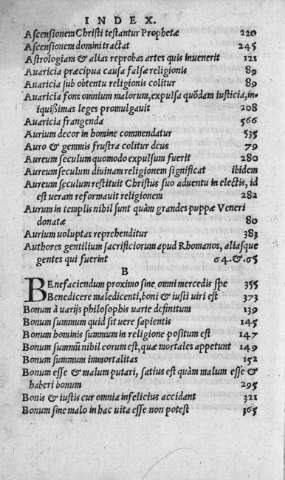 INDEX.
Ascensionem Christi testantur Prophetæ 220
Ascensionem domini tractat 245
Astrologiam & alias reprobas artes quis inuenerit 121
Auaricia præcipua causa falsæ religionis 89
Auaricia sub obtentu religionis colitur 89
Auaricia fons omnium malorum, expulsa quōdam iusticia, in-
iquißimas leges promulgauit 208
Auaricia frangenda 566
Aurium decor in homine commendatur 535
Auro & gemmis frustra colitur deus 79
Aureum seculum quomodo expulsum fuerit 280
Aureum seculum diuinam religionem significat ibidem
Aureum seculum restituit Christus suo aduentu in electis, id
est ueram reformauit religionem 282
Aurum in templis nihil sunt quàm grandes puppæ Veneri
donatæ 80
Aurium uoluptas reprehenditur 383
Authores gentilium sacrificiorum apud Rhomanos, aliasque
gentes qui fuerint 64. & .65
B
Benefaciendum proximo sine, omni mercedis spe 355
Benedicere maledicenti, boni & iusti uiri est 373
Bonum à uarijs philosophis uarte definitum 139
Bonum summum quid sit uere sapientis 145
Bonum hominis summum in religione positum est 147
Bonum summū nihil eorum est, quæ mortales appetunt 149
Bonum summum immortalitas 152
Bonum esse & malum putari, satius est quàm malum esse &
haberi bonum 295
Bonis & iustis cur omnia infelicius accidant 321
Bonum sine malo in hac uita esse non potest 365